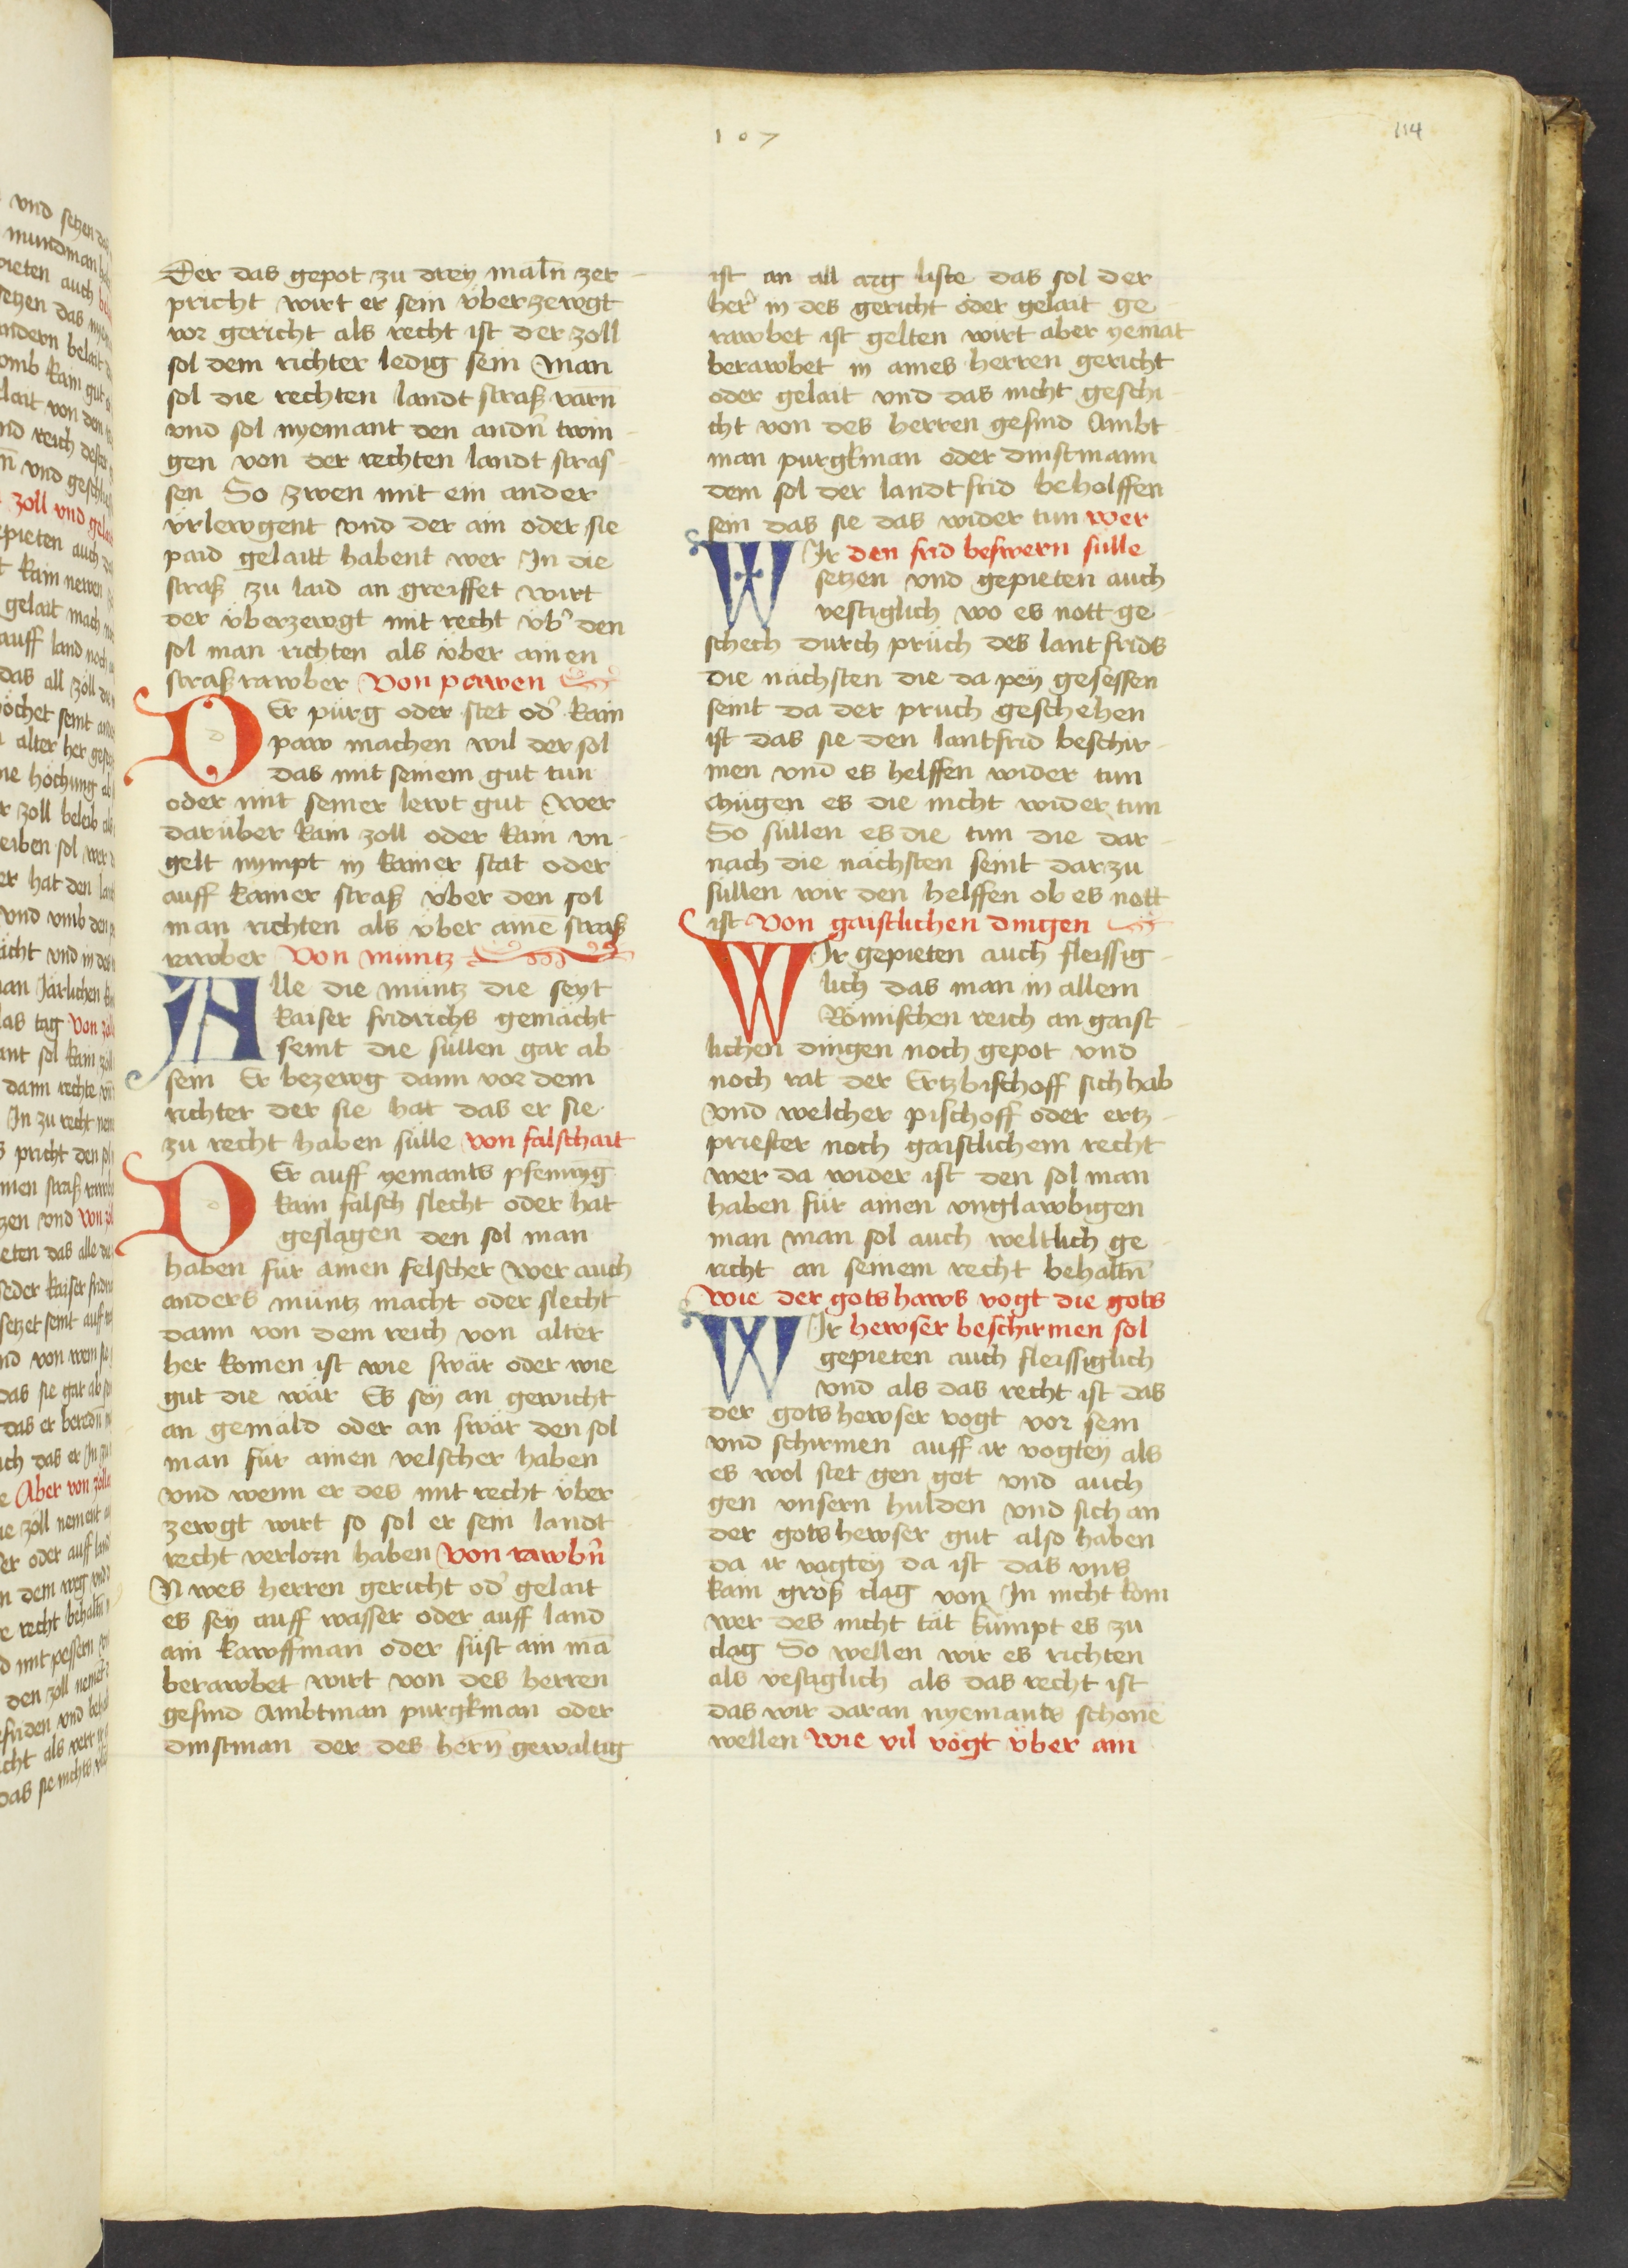 107
114
Der das gepot zu drey maln̄ zer-
pricht wirt er sein v̈berzewgt
vor gericht als recht ist der zoll
sol dem richter ledig sein Man
sol die rechten landt straß varn̄
vnd sol nyemant den andn̄ twin-
gen von der rechten landt stras-
sen So zwen mit ein ander
v̈rlewgent vnd der ain oder sie
paid gelaitt habent wer In die
straß zu laid an greiffet wirt
der v̈berzewgt mit recht v̈b' den
sol man richten als v̈ber ainen
straßrawber Von pawen
DEr pürg oder stet od' kain
paw machen wil der sol
das mit seinem gut tun
oder mit seiner lewt gut Wer
darüber kain zoll oder kain vn-
gelt nympt in kainer stat oder
auff kainer straß v̈ber den sol
man richten als v̈ber ainē straß
rawber Von müntz
Alle die müntz die seyt
kaiser fridrichs gemacht
seint die süllen gar ab
sein Er bezewg dann vor dem
richter der sie hat das er sie
zu recht haben sülle von falschait
DEr auff yemants pfennyg
kain falsch slecht oder hat
geslagen den sol man
haben für ainen felscher Wer auch
anders müntz macht oder slecht
dann von dem reich von alter
her komen ist wie swär oder wie
gut die wär Es sey an gewicht
an gemäld oder an swär den sol
man für ainen velscher haben
vnd wenn er des mit recht v̈ber-
zewgt wirt so sol er sein landt
recht verlorn haben Von rawbn̄
N wes herren gericht od' gelait
es sey auff wasser oder auff land
ain kawffman oder süst ain mā
berawbet wirt von des herren
gesind Ambtman purgkman oder
dinstman der des hern̄ gewaltig
ist an all arg liste das sol der
her' in des gericht oder gelait ge-
rawbet ist gelten wirt aber yemāt
berawbet in aines herren gericht
oder gelait vnd das nicht geschi-
cht von des herren gesind Ambt-
man purgkman oder dinstmann
dem sol der landtfrid beholffen
sein das sie das wider tun wer
WIr den frid beswern sülle
setzen vnd gepieten auch
vestiglich wo es nott ge-
schech durch prüch des lantfrids
die nächsten die da pey gesessen
seint da der pruch geschehen
ist das sie den lantfrid beschir-
men vnd es helffen wider tun
Mügen es die nicht wider tun
So süllen es die tun die dar-
nach die nächsten seint darzu
süllen wir den helffen ob es nott
ist Von gaistlichen dingen
WIr gepieten auch fleissig-
lich das man in allem
Römischen reich an gaist-
lichen dingen noch gepot vnd
noch rat der Ertzbischoff sich hab
vnd welcher pischoff oder ertz-
priester noch gaistlichem recht
wer da wider ist den sol man
haben für ainen vnglawbigen
man man sol auch weltlich ge-
richt an seinem recht behaltn̄
Wie der gotshaws vogt die gots
WIr hewser beschirmen sol
gepieten auch fleissiglich
vnd als das recht ist das
der gotshewser vogt vor sein
vnd schirmen auff ir vogtey als
es wol stet gen got vnd auch
gen vnsern hulden vnd sich an
der gotshewser gut also haben
da ir vogtey da ist das vns
kain groß clag von In nicht kom
wer des nicht tät kümpt es zu
clag So wellen wir es richten
als vestiglich als das recht ist
das wir daran nyemants schonē
wellen Wie vil vögt v̈ber ain